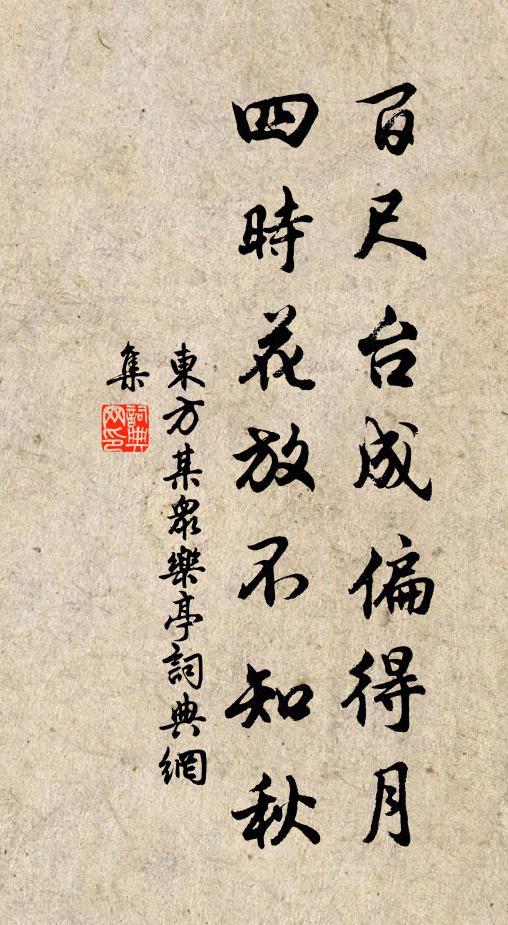 百尺台成偏得月
四時花放不知秋
東方某衆樂亭詞典網
集
詞典
网印